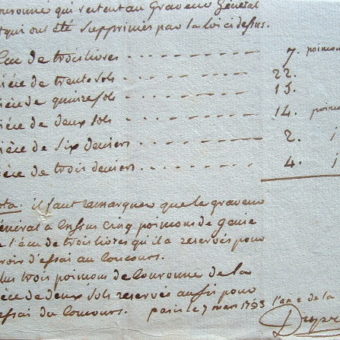 couronne qui restent au Graveur Général
qui ont été supprimés par la loi ci dessus.
Ecu de trois livres - - - - - - - - 7. poinçons
pièce de trente sols - - - - - - - - 22.
pièce de quinze sols - - - - - - - - 13.
pièce de deux sols - - - - - - - - 14. poinçons
pièce de six deniers - - - - - - - - 2.
pièce de trois deniers - - - - - - - - 4.
nota. il faut remarquer que le graveur
général a en sus cinq poinçons de genie
de l'écu de trois livres qu'il a reservés pour
d'essai au concours.
plus trois poinçons de couronne de la
pièce de deux sols reservés aussi pour
essai du concours. paris le 7 mars 1793 l'an 2 de la